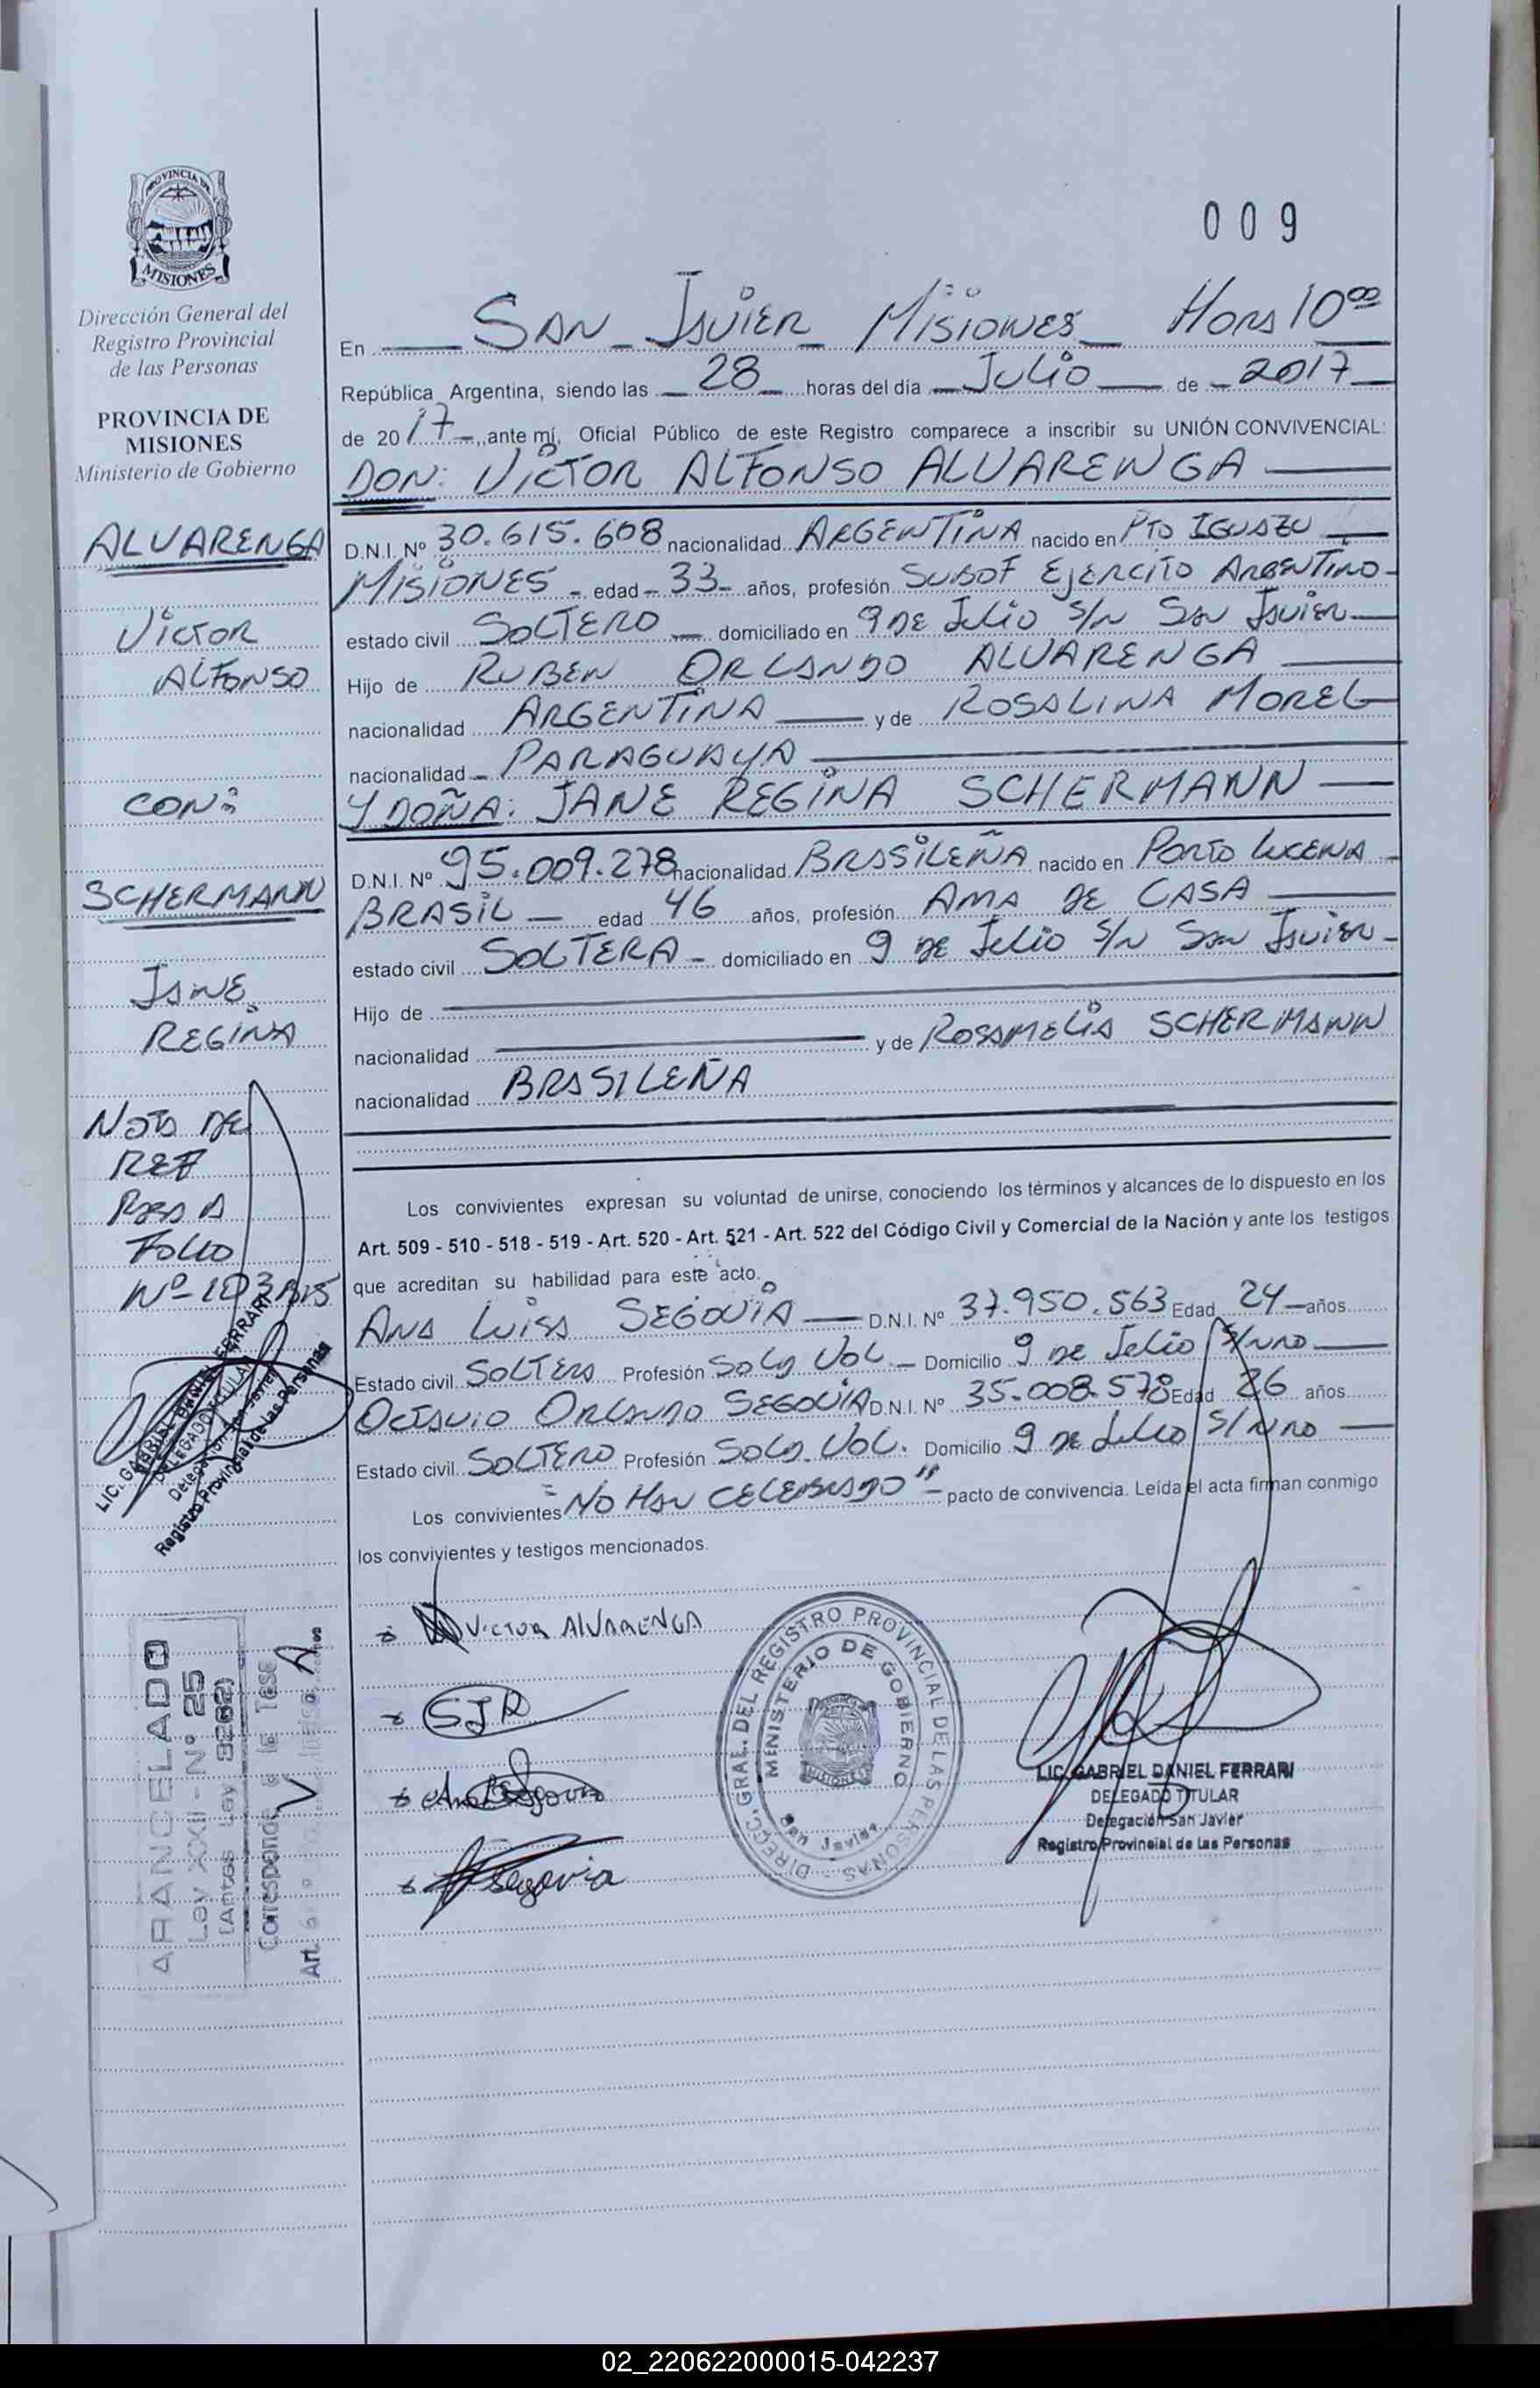 PROVINCIA DE
MISIONES
Dirección General del
Registro Provincial
de las Personas
PROVINCIA DE
MISIONES
Ministerio de Gobierno
ALVARENGA
VICTOR
ALFONSO
CON:
SCHERMANN
JANE
REGINA
NOTA DE
REF
PASA A
FOLIO
Nº
LIC. GABRIEL DANIEL FERRARI
DELEGADO TITULAR
Delegación San Javier
Registro Provincial de las Personas
ARANCELADO
Ley XXII - Nº 25
(Antes Ley 3262)
Corresponde la Tasa
Art. 6
009
En SAN JAVIER MISIONES HORA 10 00
República Argentina, siendo las 28 horas del día JULIO de 2017
de 2017, ante mí, Oficial Público de este Registro comparece a inscribir su UNIÓN CONVIVENCIAL:
DON: VICTOR ALFONSO ALVARENGA
D.N.I. Nº 30.615.608 nacionalidad ARGENTINA nacido en PTO IGUAZU
MISIONES edad 33 años, profesión SUBOF EJERCITO ARGENTINO
estado civil SOLTERO domiciliado en 9 DE JULIO S/N SAN JAVIER
Hijo de RUBEN ORLANDO ALVARENGA
nacionalidad ARGENTINA y de ROSALINA MOREL
nacionalidad PARAGUAYA
Y DOÑA: JANE REGINA SCHERMANN
D.N.I. Nº 95.009.278 nacionalidad BRASILEÑA nacido en PORTO LUCENA
BRASIL edad 46 años, profesión AMA DE CASA
estado civil SOLTERA domiciliado en 9 DE JULIO S/N SAN JAVIER
Hijo de
nacionalidad y de ROSAMELIA SCHERMANN
nacionalidad BRASILEÑA
Los convivientes expresan su voluntad de unirse, conociendo los términos y alcances de lo dispuesto en los
Art. 509 - 510 - 518 - 519 - Art. 520 - Art. 521 - Art. 522 del Código Civil y Comercial de la Nación y ante los testigos
que acreditan su habilidad para este acto.
ANA LUISA SEGOVIA D.N.I. Nº 37.950.563 Edad 24 años
Estado civil SOLTERA Profesión SOLD VOL Domicilio 9 DE JULIO S/NRO
OCTAVIO ORLANDO SEGOVIA D.N.I. Nº 35.008.578 Edad 26 años
Estado civil SOLTERO Profesión SOLD VOL. Domicilio 9 DE JULIO S/NRO
Los convivientes "NO HAN CELEBRADO" pacto de convivencia. Leída el acta firman conmigo
los convivientes y testigos mencionados.
VICTOR ALVARENGA
SJR
Ana Segovia
Segovia
DIRECC. GRAL. DEL REGISTRO PROVINCIAL DE LAS PERSONAS
MINISTERIO DE GOBIERNO
MISIONES
San Javier
LIC. GABRIEL DANIEL FERRARI
DELEGADO TITULAR
Delegación San Javier
Registro Provincial de las Personas
02_220622000015-042237